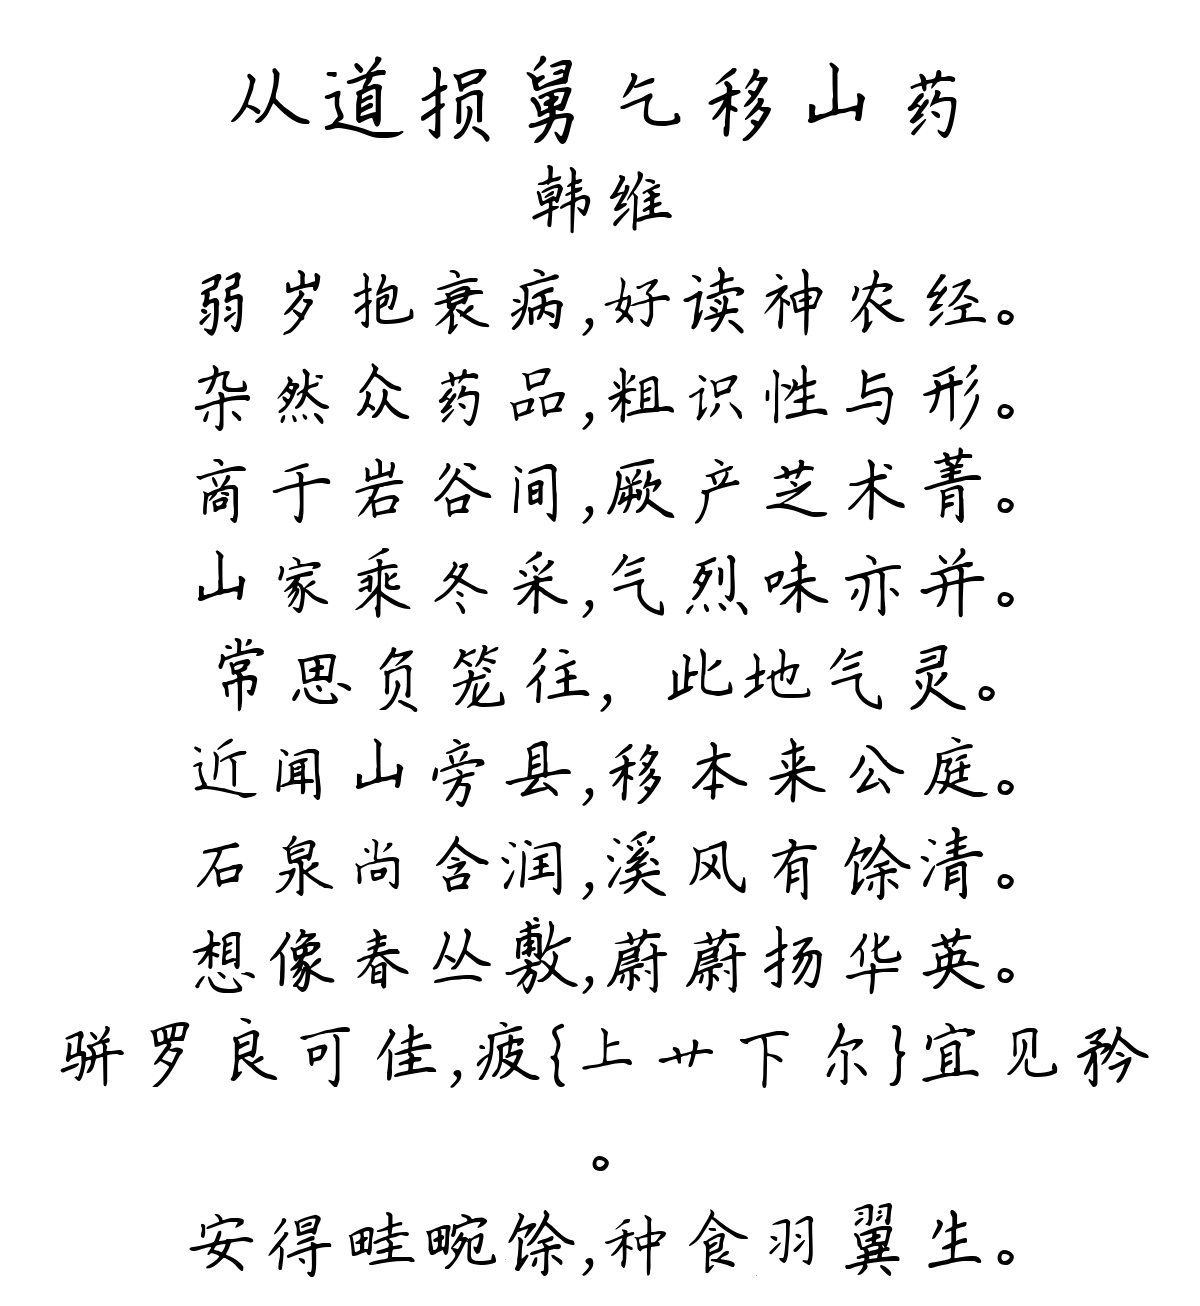 从道损舅乞移山药
韩维
弱岁抱衰病,好读神农经。
杂然众药品,粗识性与形。
商于岩谷间,厥产芝术菁。
山家乘冬采,气烈味亦并。
常思负笼往，此地气灵。
近闻山旁县,移本来公庭。
石泉尚含润,溪风有馀清。
想像春丛敷,蔚蔚扬华英。
骈罗良可佳,疲{上艹下尔}宜见矜
。
安得畦畹馀,种食羽翼生。